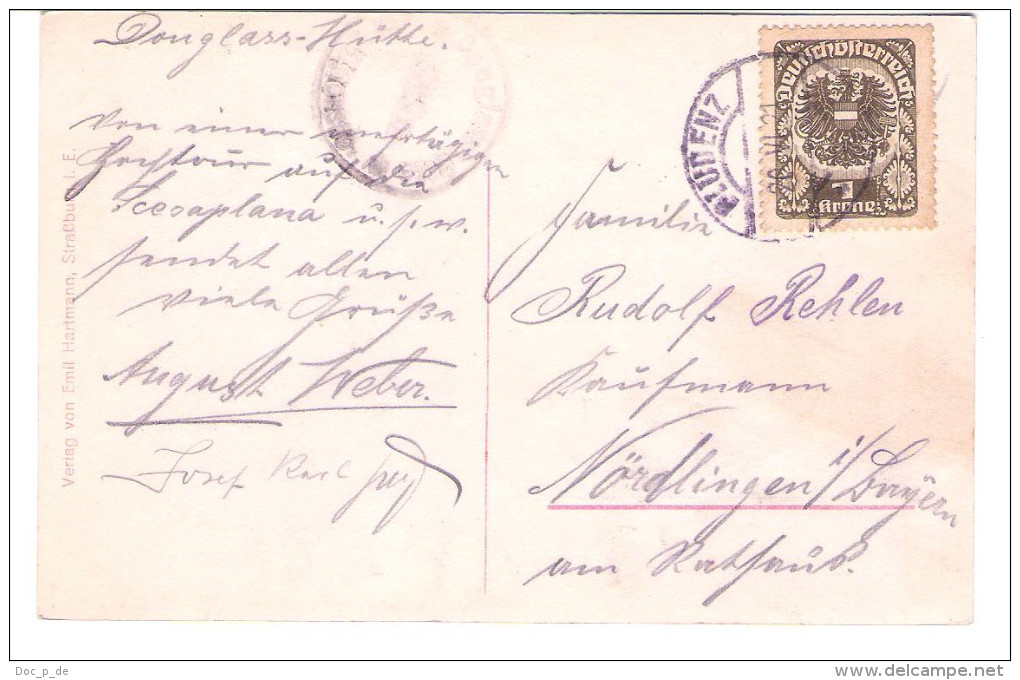 Douglass-Hütte.
Von einer mehrtägigen
Hochtour auf die
Scesaplana u. s. w.
sendet allen
viele Grüße
August Weber.
Josef Karl
Verlag von Emil Hartmann, Straßburg i. E.
BLUDENZ
Deutschösterreich
1
Krone
Familie
Rudolf Rehlen
Kaufmann
Nördlingen i/Bayern
am Rathaus.
Doc_p_de
www.delcampe.net